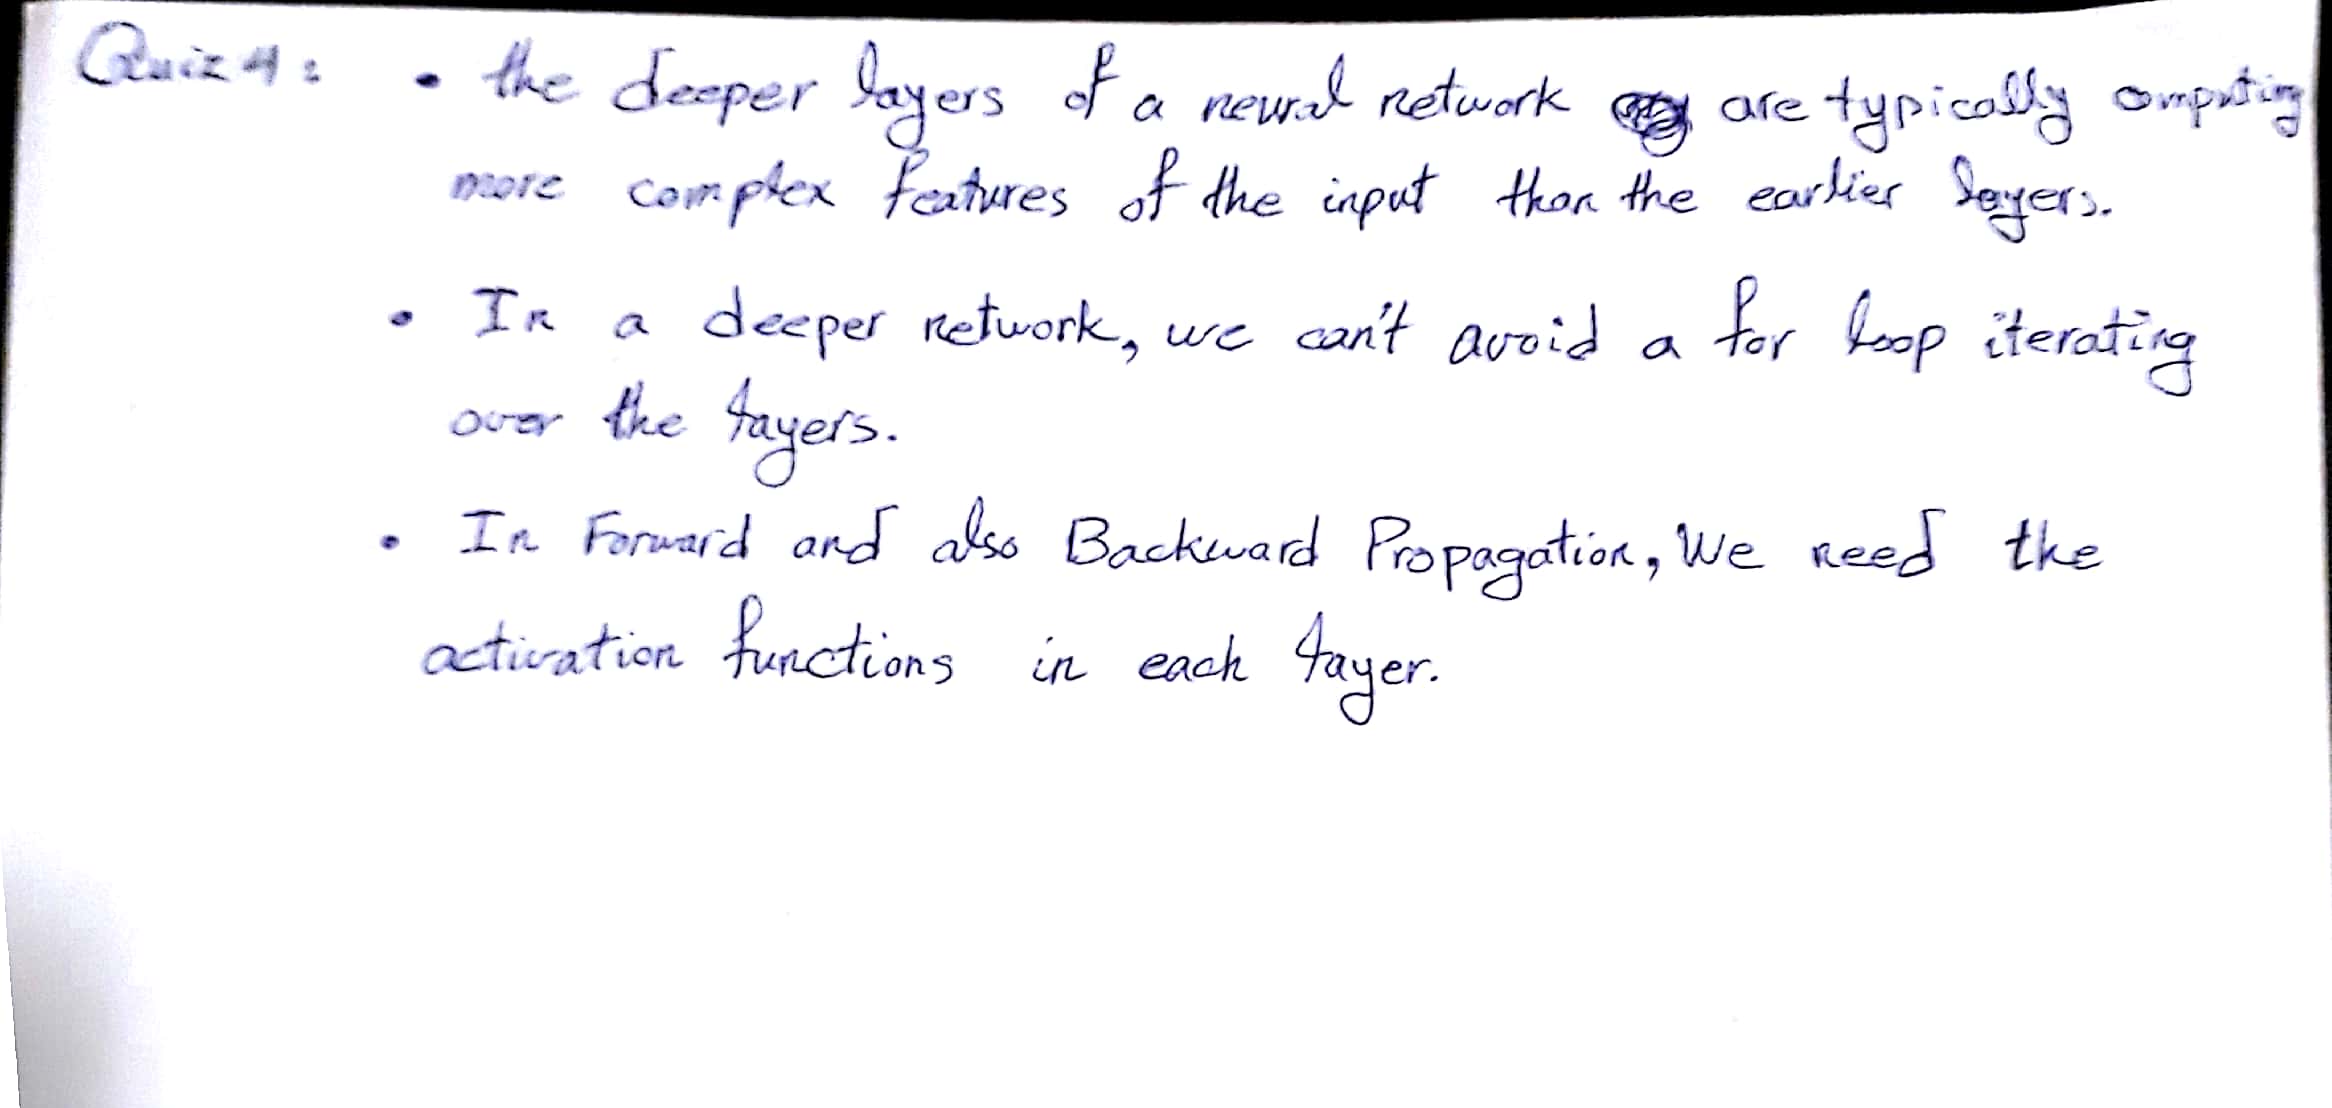 Quiz 4: • the deeper layers of a neural network are typically computing
more complex features of the input than the earlier layers.
• In a deeper network, we can't avoid a for loop iterating
over the layers.
• In Forward and also Backward Propagation, We need the
activation functions in each layer.